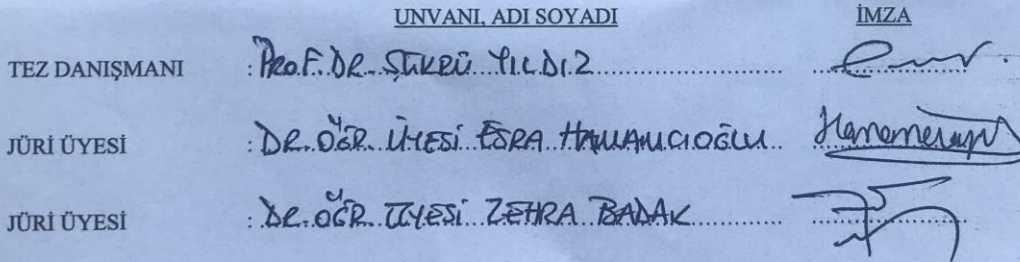 UNVANI, ADI SOYADI İMZA
TEZ DANIŞMANI : PROF. DR. ŞÜKRÜ YILDIZ
JÜRİ ÜYESİ : DR. ÖĞR. ÜYESİ ESRA HAMAMCIOĞLU
JÜRİ ÜYESİ : DR. ÖĞR. ÜYESİ ZEHRA BADAK